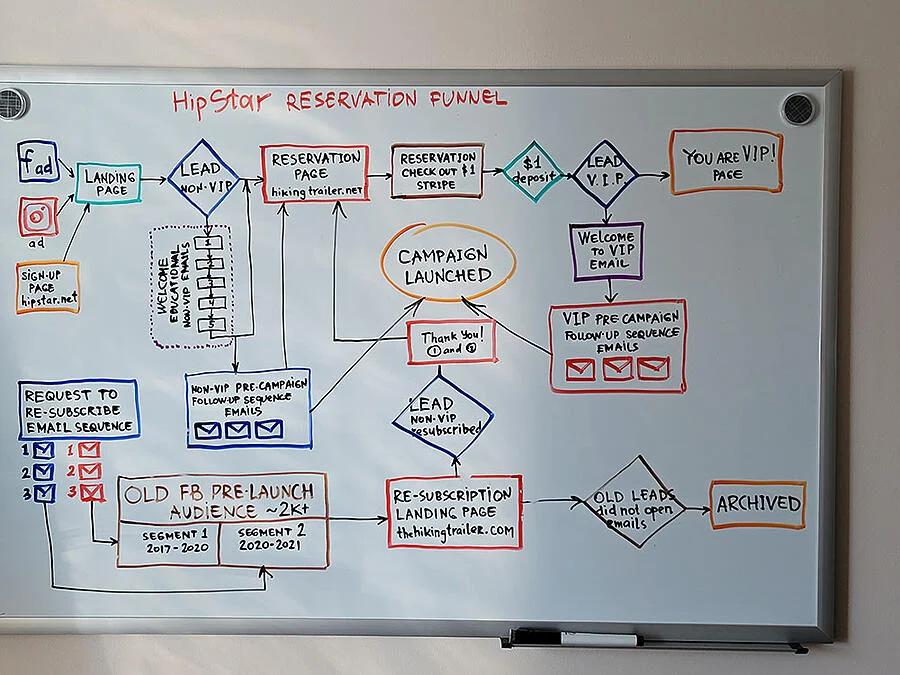 HipStar RESERVATION FUNNEL
f ad
LANDING
PAGE
ad
SIGN-UP
PAGE
hipstar.net
LEAD
NON-VIP
RESERVATION
PAGE
hikingtrailer.net
RESERVATION
CHECK OUT $1
STRIPE
$1
deposit
LEAD
V.I.P.
YOU ARE VIP!
PAGE
WELCOME
EDUCATIONAL
NON-VIP EMAILS
1
2
3
4
5
CAMPAIGN
LAUNCHED
Welcome
TO VIP
EMAIL
VIP PRE CAMPAIGN
FOLLOW-UP SEQUENCE
EMAILS
Thank You!
① and ②
NON-VIP PRE-CAMPAIGN
FOLLOW-UP SEQUENCE
EMAILS
LEAD
NON-VIP
resubscribed
REQUEST TO
RE-SUBSCRIBE
EMAIL SEQUENCE
1 1
2 2
3 3
OLD FB PRE-LAUNCH
AUDIENCE ~2K+
SEGMENT 1
2017-2020
SEGMENT 2
2020-2021
RE-SUBSCRIPTION
LANDING PAGE
thehikingtrailer.com
OLD LEADS
did not open
emails
ARCHIVED